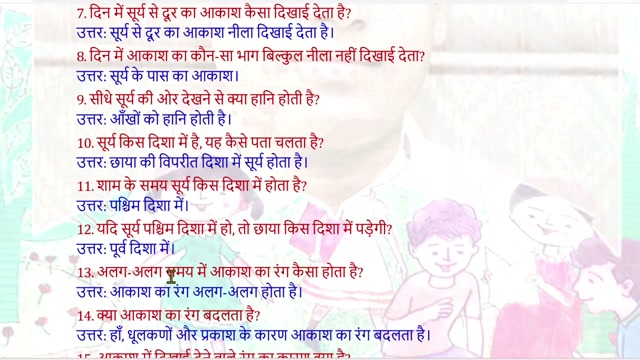 7. दिन में सूर्य से दूर का आकाश कैसा दिखाई देता है?
उत्तर: सूर्य से दूर का आकाश नीला दिखाई देता है।
8. दिन में आकाश का कौन-सा भाग बिल्कुल नीला नहीं दिखाई देता?
उत्तर: सूर्य के पास का आकाश।
9. सीधे सूर्य की ओर देखने से क्या हानि होती है?
उत्तर: आँखों को हानि होती है।
10. सूर्य किस दिशा में है, यह कैसे पता चलता है?
उत्तर: छाया की विपरीत दिशा में सूर्य होता है।
11. शाम के समय सूर्य किस दिशा में होता है?
उत्तर: पश्चिम दिशा में।
12. यदि सूर्य पश्चिम दिशा में हो, तो छाया किस दिशा में पड़ेगी?
उत्तर: पूर्व दिशा में।
13. अलग-अलग समय में आकाश का रंग कैसा होता है?
उत्तर: आकाश का रंग अलग-अलग होता है।
14. क्या आकाश का रंग बदलता है?
उत्तर: हाँ, धूलकणों और प्रकाश के कारण आकाश का रंग बदलता है।
15. आकाश में दिखाई देने वाले रंग का कारण क्या है?